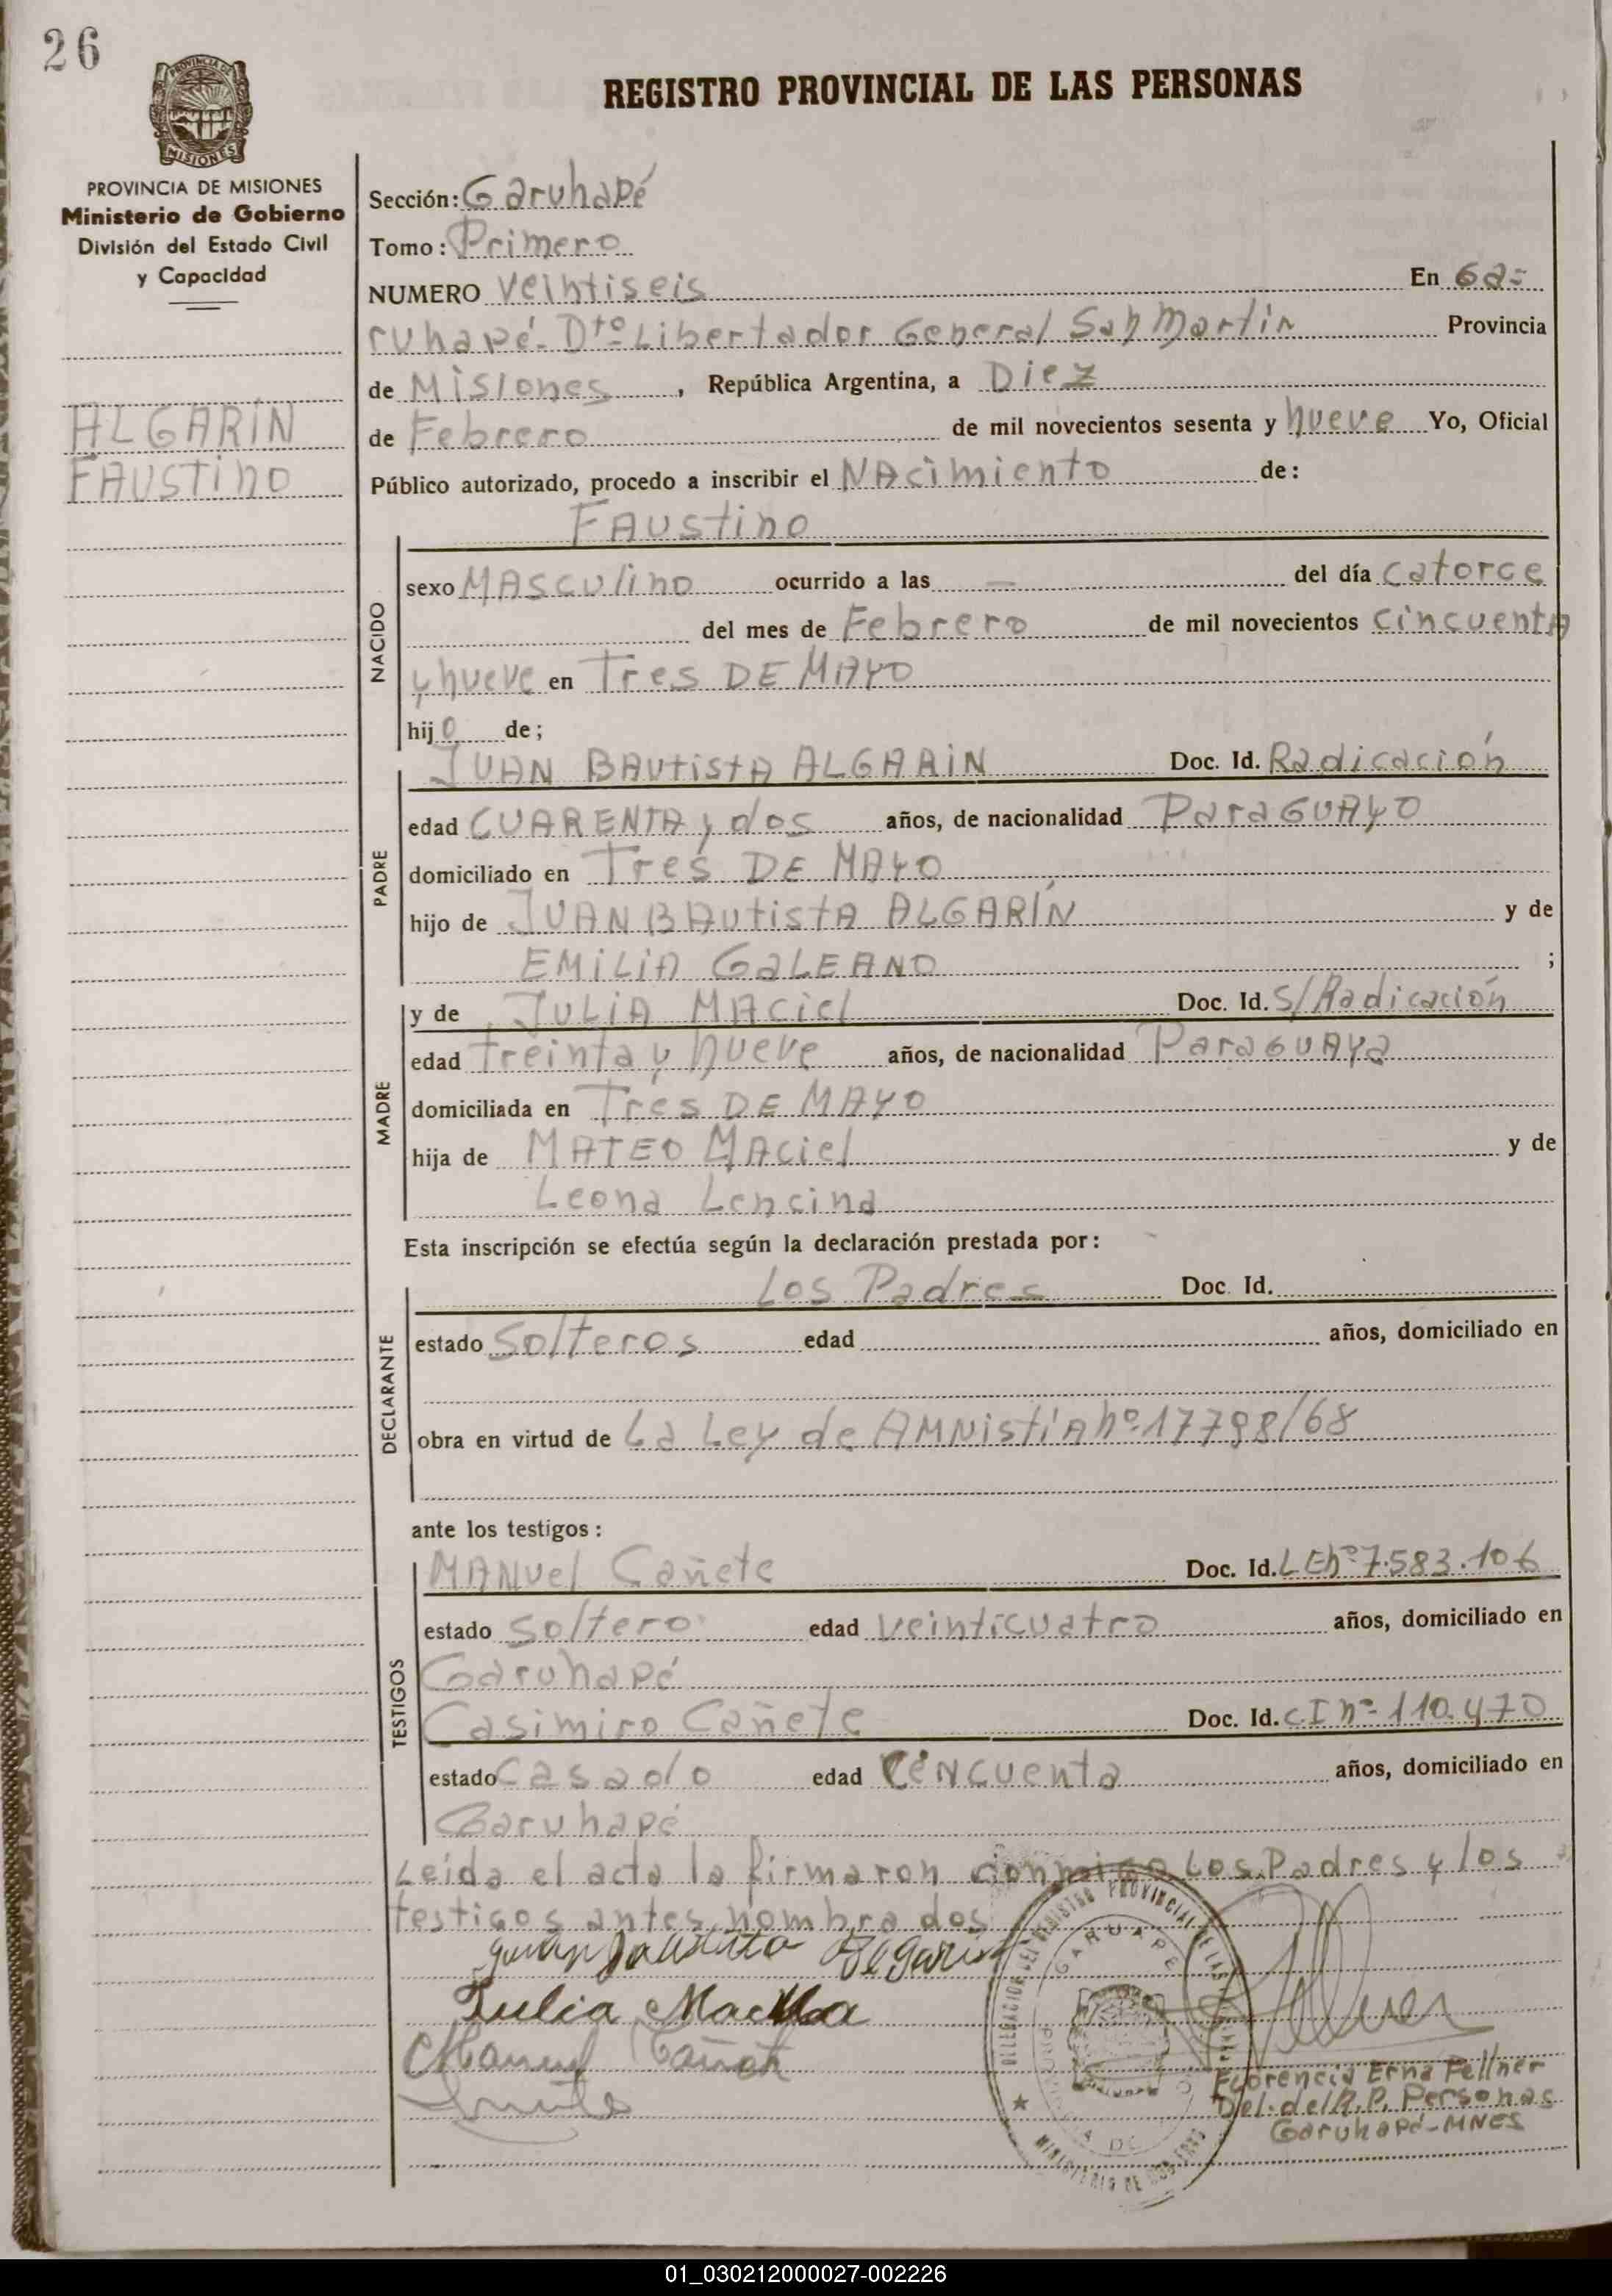 26
PROVINCIA DE
MISIONES
REGISTRO PROVINCIAL DE LAS PERSONAS
PROVINCIA DE MISIONES
Ministerio de Gobierno
División del Estado Civil
y Capacidad
ALGARÍN
FAUSTINO
Sección: Garuhapé
Tomo: Primero
NUMERO Veintiseis En Ga=
ruhapé- Dto Libertador General San Martín Provincia
de Misiones, República Argentina, a Diez
de Febrero de mil novecientos sesenta y nueve Yo, Oficial
Público autorizado, procedo a inscribir el NAcimiento de:
FAUStino
NACIDO
sexo MASculino ocurrido a las — del día catorce
del mes de Febrero de mil novecientos cincuentA
y nueve en Tres DE MAYO
hijo de;
PADRE
JUAN BAutistA ALGARIN Doc. Id. Radicación
edad CUARENTA y dos años, de nacionalidad ParaGUAYO
domiciliado en Tres DE MAYO
hijo de JUAN BAutistA ALGARÍN y de
EMILIA GaLEANO ;
MADRE
y de JULIA MAciel Doc. Id. S/Radicación
edad treinta y nueve años, de nacionalidad ParaGUAYa
domiciliada en Tres DE MAYO
hija de MATEO MAciel y de
Leona Lencina
Esta inscripción se efectúa según la declaración prestada por:
DECLARANTE
Los Padres Doc. Id.
estado Solteros edad años, domiciliado en
obra en virtud de La Ley de AMNistíA nº 17798/68
ante los testigos:
TESTIGOS
MANuel Cañete Doc. Id. LE nº 7.583.106
estado Soltero edad veinticuatro años, domiciliado en
Garuhapé
Casimiro Cañete Doc. Id. CI nº 110.470
estado Casado edad CiNcuenta años, domiciliado en
Garuhapé
Leída el acta la firmaron conmigo Los Padres y los
testigos antes nombrados
Juan Bautista Algarin
Julia
Manuel Cañete
DELEGACION DEL REGISTRO PROVINCIAL DE LAS PERSONAS
GARUAPE
PROVINCIA DE
MINISTERIO DE GOBIERNO
Florencia Erna Fellner
Del. del R.P. Personas
Garuhapé-MNES
01_030212000027-002226